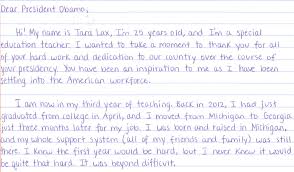 Dear President Obama,
Hi! My name is Tara Lux, I'm 25 years old, and I'm a special
education teacher. I wanted to take a moment to thank you for all
of your hard work and dedication to our country over the course of
your presidency. You have been an inspiration to me as I have been
settling into the American workforce.
I am now in my third year of teaching. Back in 2012, I had just
graduated from college in April, and I moved from Michigan to Georgia
just three months later for my job. I was born and raised in Michigan,
and my whole support system (all of my friends and family) was still
there. I knew the first year would be hard, but I never knew it would
be quite that hard. It was beyond difficult.